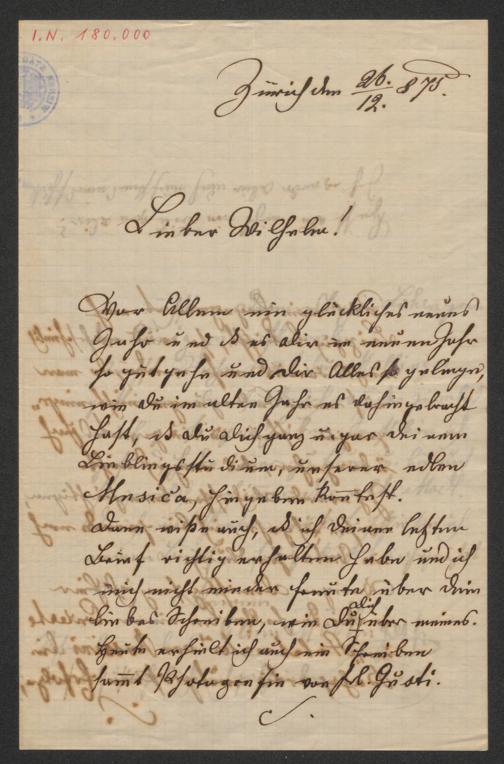 I.N. 180.000
Zürich den 26./12. 875.
Lieber Wilhelm!
Vor Allem ein glückliches neues
Jahr und es dir im neuen Jahr
so gut gehe und dir Alles so gelinge,
wie du im alten Jahr es dahingebracht
hast, du dich ganz u. gar deinem
Lieblingsstudium, unserer edlen
Musica, hingeben konntest.
Dann wisse auch, ich deinen letzten
Brief richtig erhalten habe und ich
mich nicht minder freute über dein
liebes Schreiben, wie Du dich über meines.
Heute erhielt ich auch ein Schreiben
sammt Photografie von Gusti.